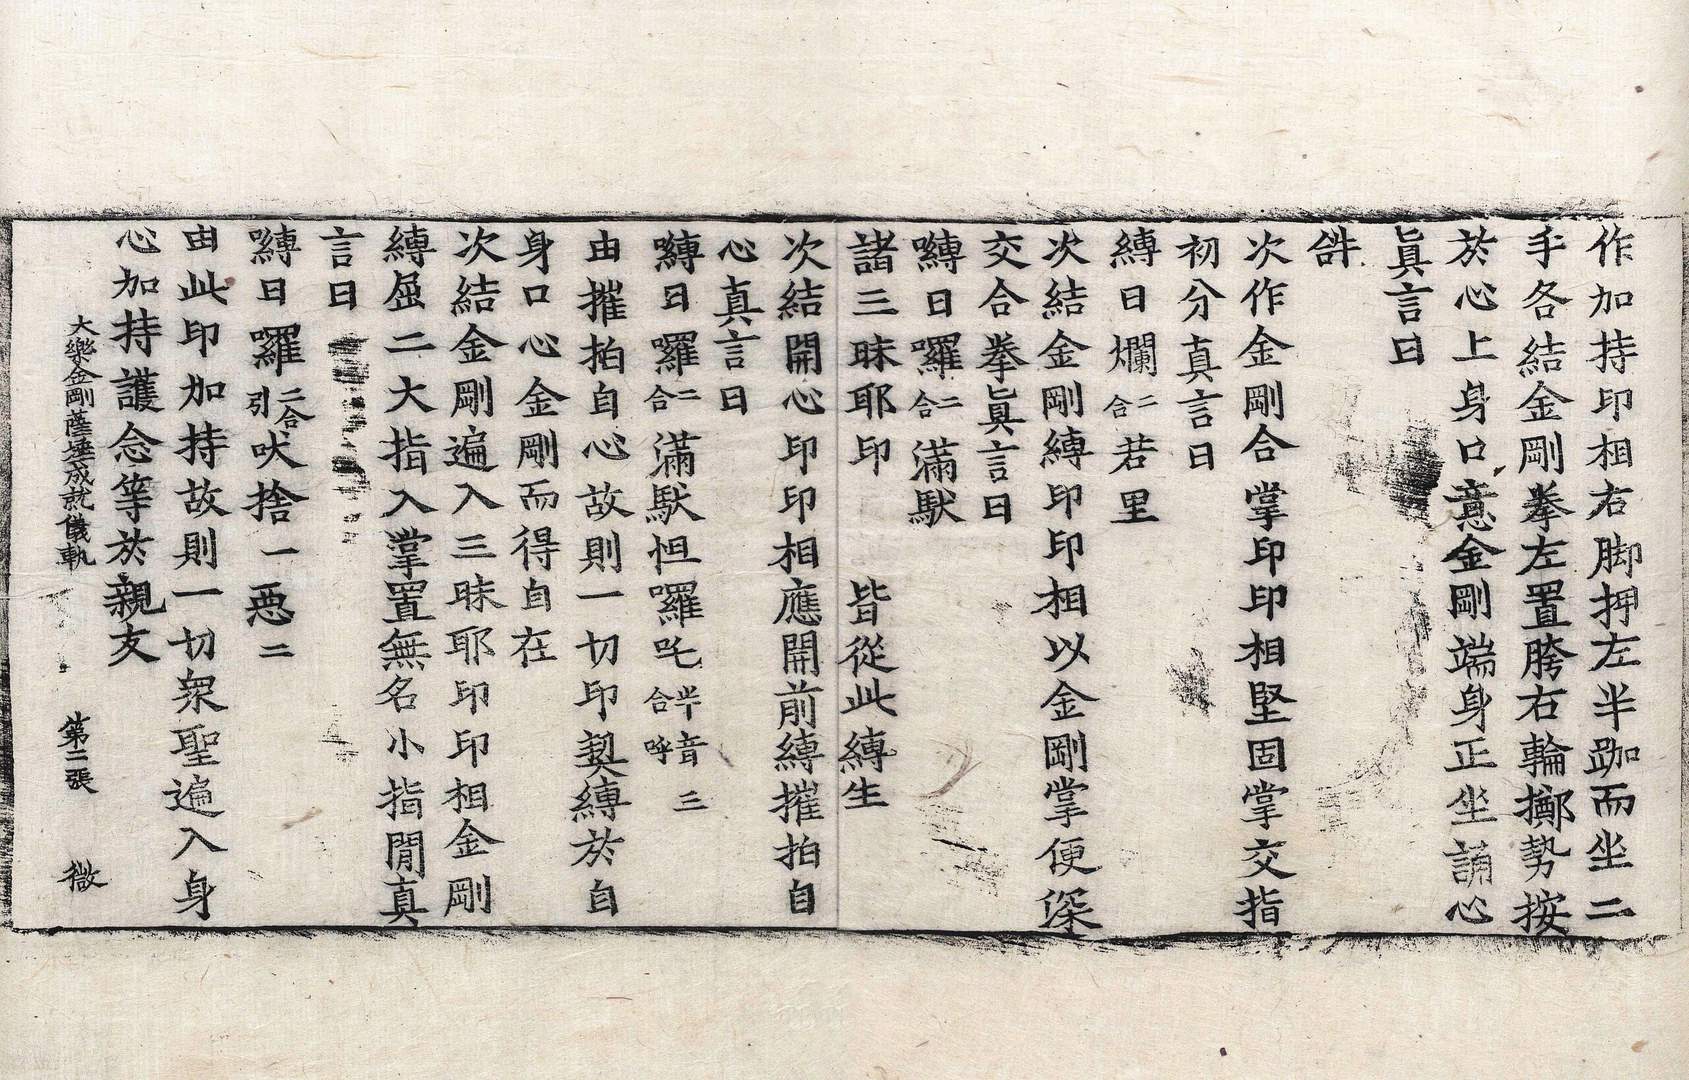 作加持印相右脚押左半跏而坐二
手各結金剛拳左置胯右輪擲勢按
於心上身口意金剛端身正坐誦心
眞言曰
斛
次作金剛合掌印印相堅固掌交指
初分真言曰
縛日爛二合若里
次結金剛縛印印相以金剛掌便深
交合拳眞言曰
嚩日囉二合滿馱
諸三昧耶印 皆從此縛生
次結開心印印相應開前縛摧拍自
心真言曰
嚩日囉二合滿馱怛囉吒半音呼合三
由摧拍自心故則一切印契縛於自
身口心金剛而得自在
次結金剛遍入三昧耶印印相金剛
縛屈二大指入掌置無名小指間真
言曰
嚩日囉二合引吠捨一惡二
由此印加持故則一切衆聖遍入身
心加持護念等於親友
大樂金剛薩埵成就儀軌 第二張 微